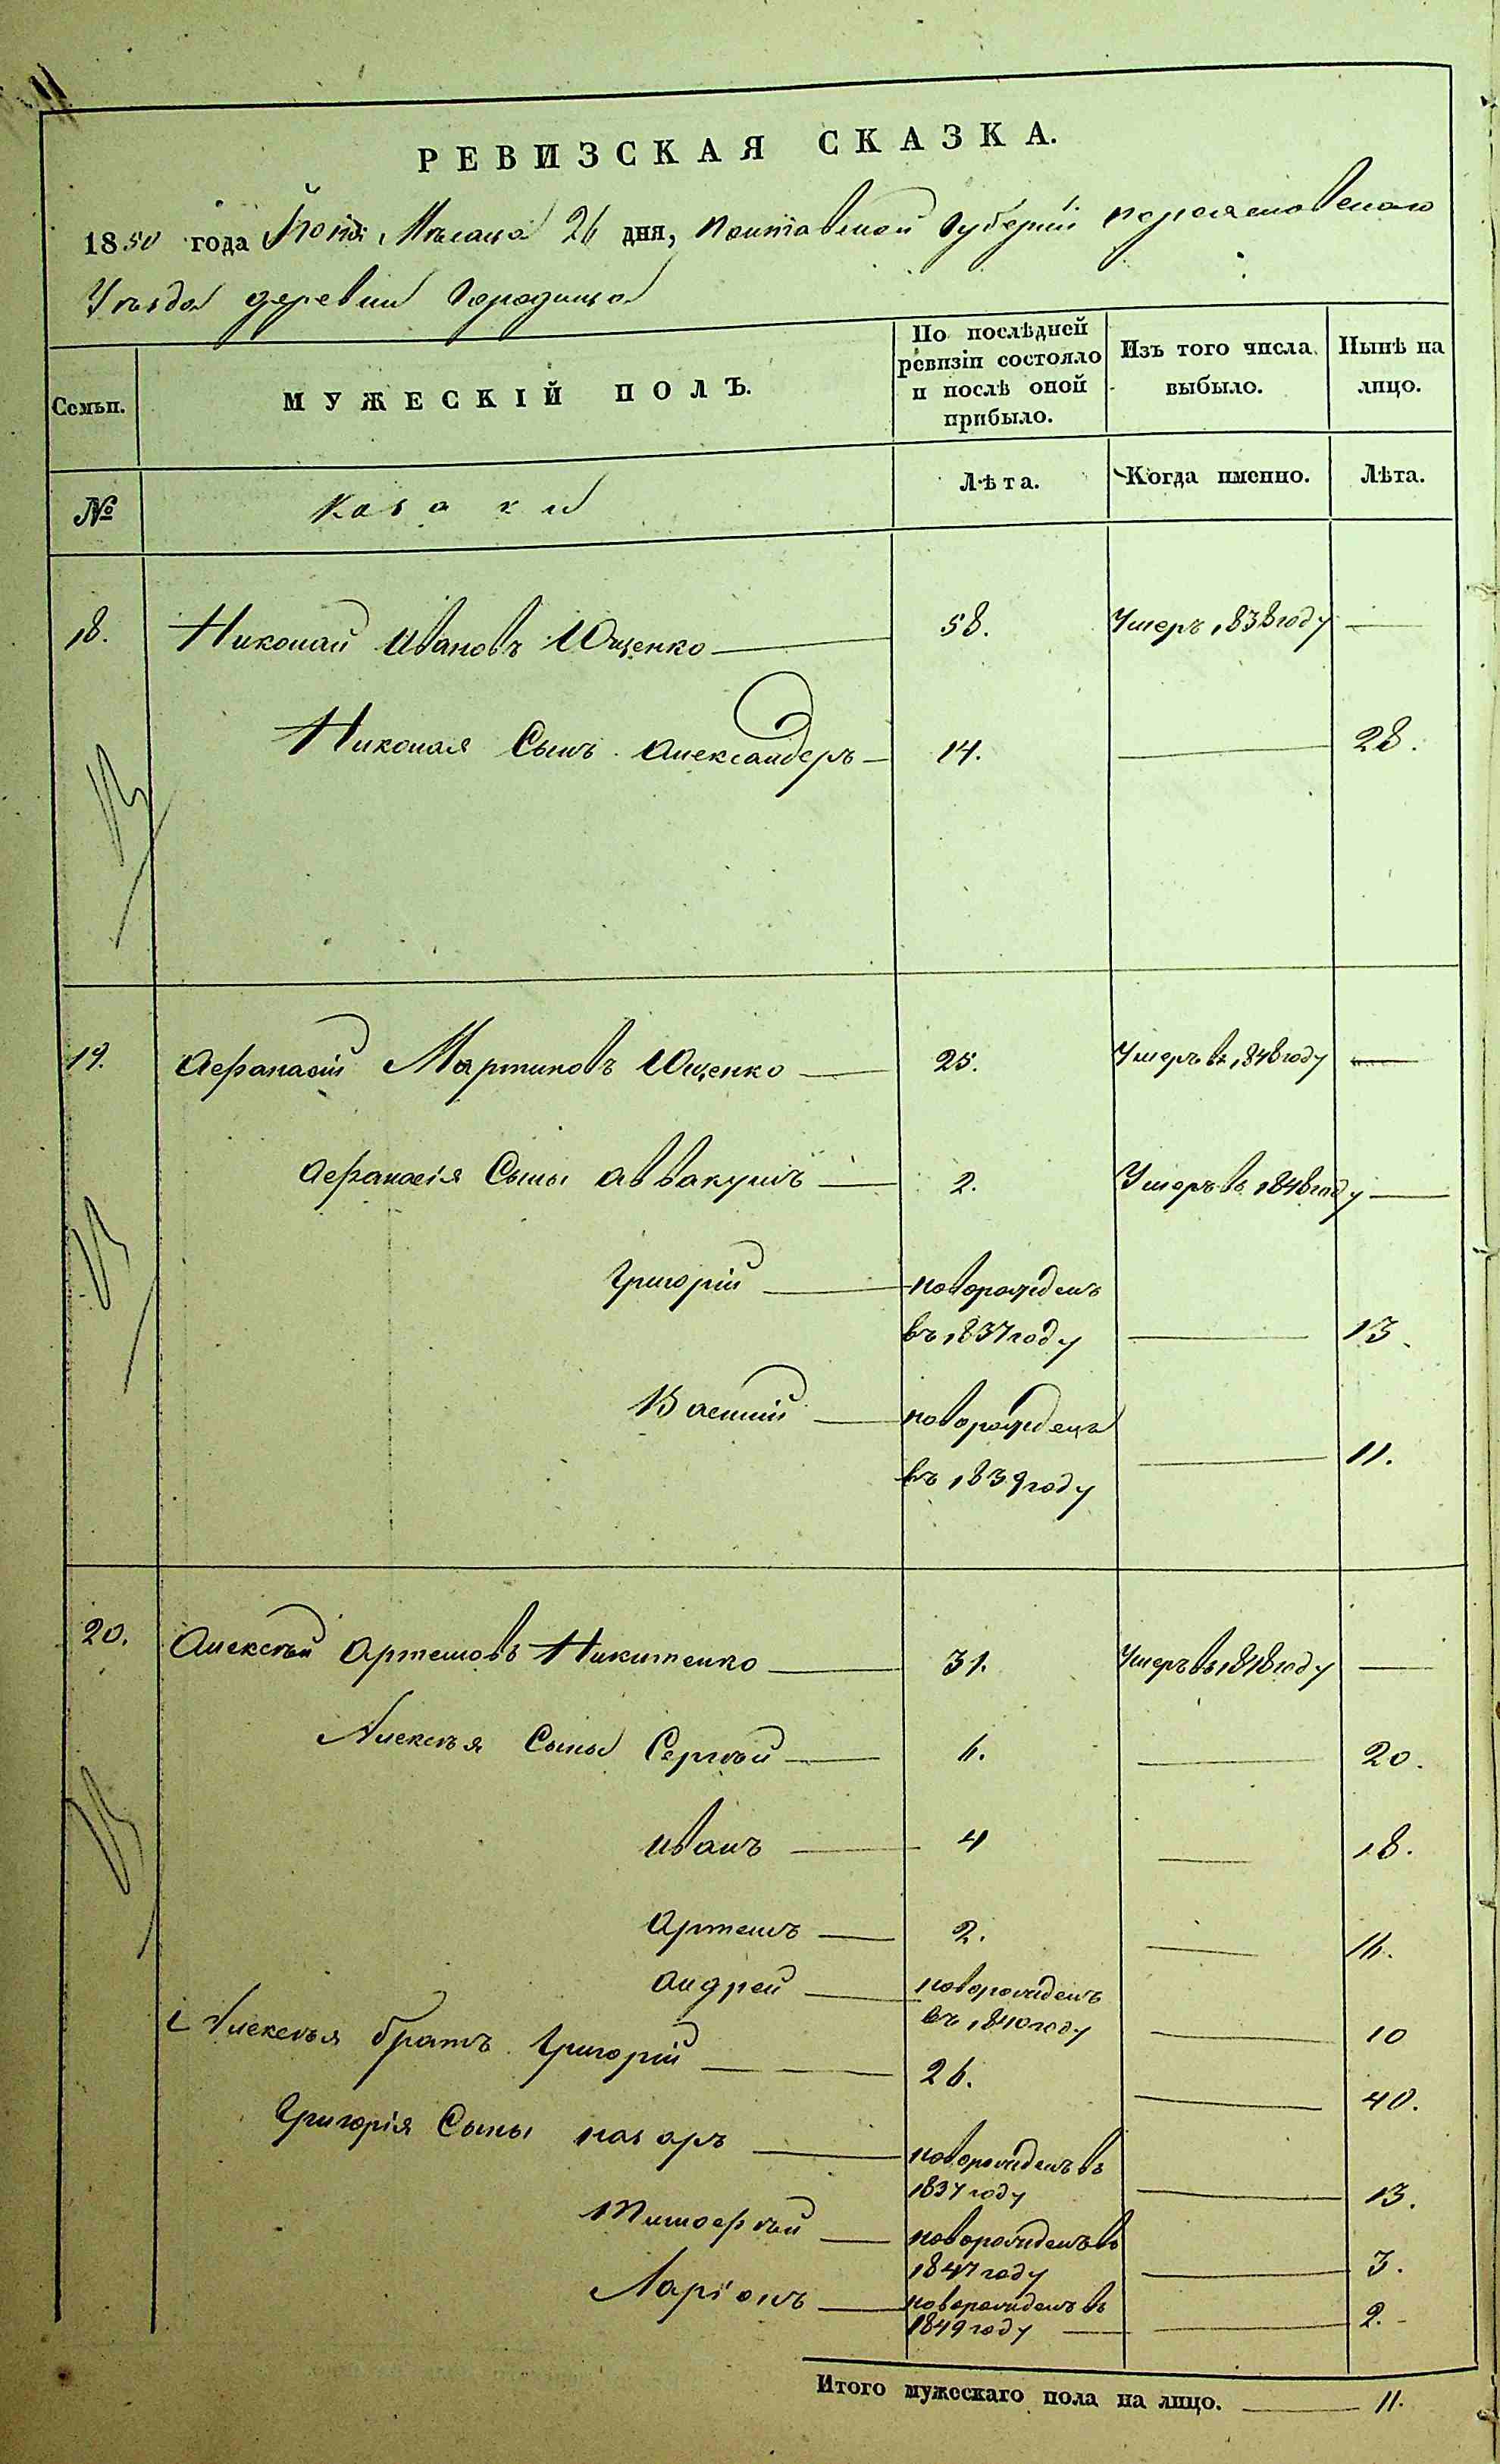 11
РЕВИЗСКАЯ СКАЗКА.
1850 года Іюня Мѣсяца 26 дня, Полтавской Губерніи Переяславскаго
Уѣзда деревни Городища
Семьи. МУЖЕСКІЙ ПОЛЪ. По послѣдней ревизіи состояло и послѣ оной прибыло. Изъ того числа выбыло. Нынѣ на лицо.
№ Казаки Лѣта. Когда именно. Лѣта.
18. Николай Ивановъ Ющенко 58. Умеръ 1838 году
Николая Сынъ Александеръ 14. 28.
19. Афанасій Мартиновъ Ющенко 25. Умеръ въ 1848 году
Афанасія Сыны Аввакумъ 2. Умеръ въ 1848 году
Григорій новорожденъ
въ 1837 году 13.
Василій новорожденъ
въ 1839 году 11.
20. Алексѣй Артемовъ Никитенко 31. Умеръ въ 1848 году
Алексѣя Сыны Сергѣй 6. 20.
Иванъ 4 18.
Артемъ 2. 16.
Андрей новорожденъ
въ 1840 году 10
Алексѣя братъ Григорій 26. 40.
Григорія Сыны Назаръ новорожденъ въ
1837 году 13.
Тимофѣй новорожденъ въ
1847 году 3.
Ларіонъ новорожденъ въ
1849 году 2.
Итого мужескаго пола на лицо. 11.